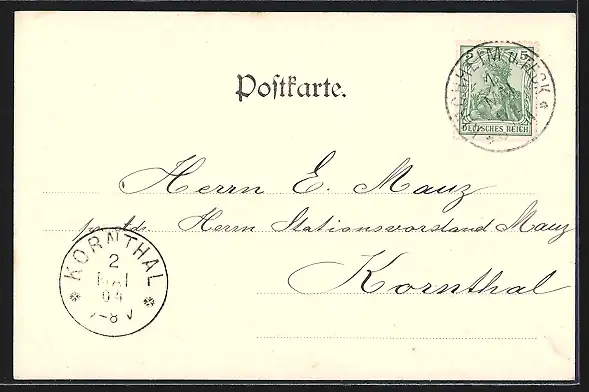 Postkarte.
5 5
DEUTSCHES REICH
KIRCHHEIM U. TECK
Herrn E. Mauz
p. ads. Herrn Stationsvorstand Mauz
Kornthal
KORNTHAL
2
MAI
04
7-8 V